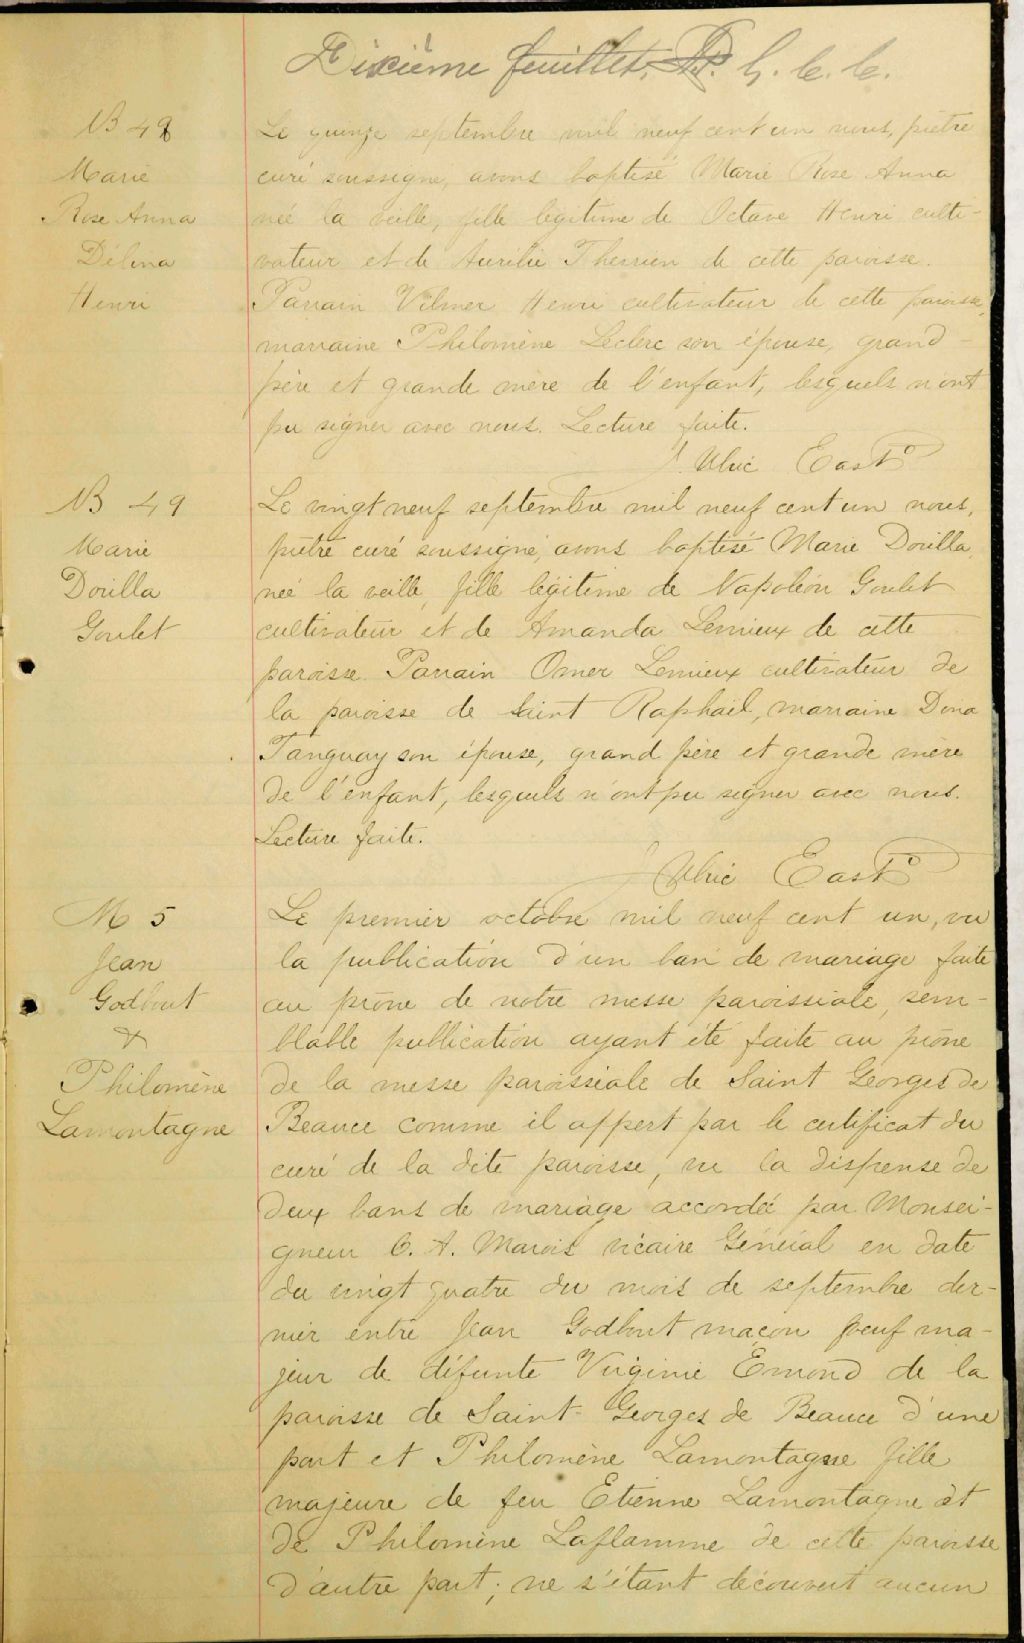 Dixième feuillet. P. G. C. C.
NB 48
Marie
Rose Anna
Délina
Henri
Le quinze septembre mil neuf cent un nous, prêtre
curé soussigné, avons baptisé Marie Rose Anna
née la veille, fille légitime de Octave Henri culti-
vateur et de Aurélie Therrien de cette paroisse.
Parrain Vilmer Henri cultivateur de cette paroisse,
marraine Philomène Leclerc son épouse, grand-
père et grande mère de l'enfant, lesquels n'ont
pu signer avec nous. Lecture faite.
J. Ulric East Ptre
NB 49
Marie
Dorilla
Goulet
Le vingt neuf septembre mil neuf cent un nous,
prêtre curé soussigné, avons baptisé Marie Dorilla,
née la veille, fille légitime de Napoléon Goulet
cultivateur et de Amanda Lemieux de cette
paroisse. Parrain Omer Lemieux cultivateur de
la paroisse de Saint Raphaël, marraine Dona
Tanguay son épouse, grand père et grande mère
de l'enfant, lesquels n'ont pu signer avec nous.
Lecture faite.
J Ulric East Ptre
M 5
Jean
Godbout
&
Philomène
Lamontagne
Le premier octobre mil neuf cent un, vu
la publication d'un ban de mariage faite
au prône de notre messe paroissiale, sem-
blable publication ayant été faite au prône
de la messe paroissiale de Saint Georges de
Beauce comme il appert par le certificat du
curé de la dite paroisse, vu la dispense de
deux bans de mariage accordée par Monsei-
gneur C. A. Marois vicaire Général en date
du vingt quatre du mois de septembre der-
nier entre Jean Godbout maçon veuf ma-
jeur de défunte Virginie Emond de la
paroisse de Saint-Georges de Beauce d'une
part et Philomène Lamontagne fille
majeure de feu Etienne Lamontagne et
de Philomène Laflamme de cette paroisse
d'autre part; ne s'étant découvert aucun